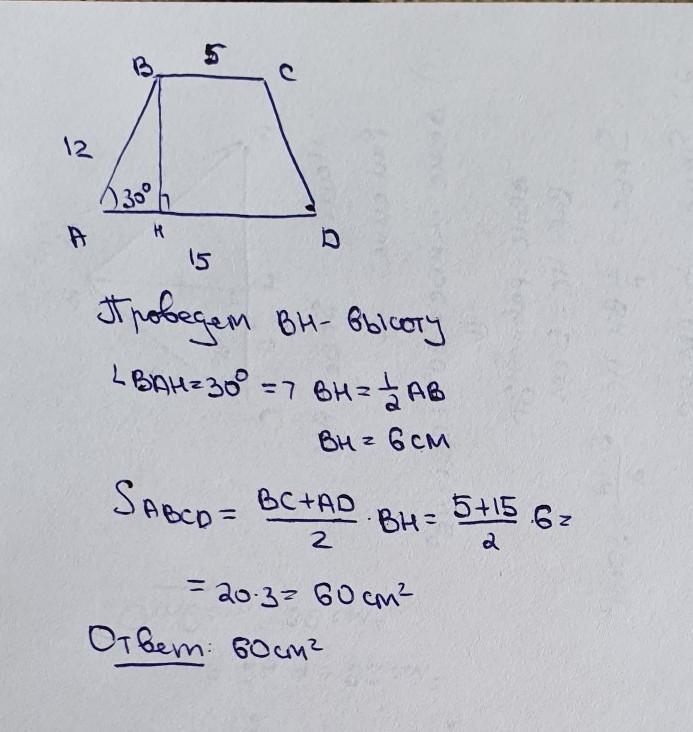 5
B C
12
30°
A H D
15
Проведем BH - высоту
∠BAH = 30° => BH = 1/2 AB
BH = 6 см
S ABCD = (BC+AD)/2 · BH = (5+15)/2 · 6 =
= 20·3 = 60 см²
Ответ: 60 см²